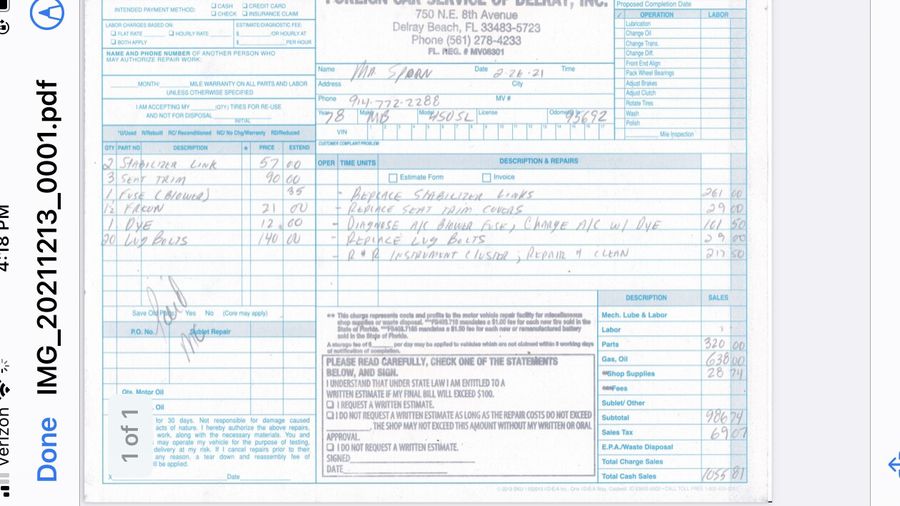 4:18 PM
Verizon
Done IMG_20211213_0001.pdf
1 of 1
INTENDED PAYMENT METHOD: ☐ CASH ☐ CREDIT CARD
☐ CHECK ☐ INSURANCE CLAIM
LABOR CHARGES BASED ON: ESTIMATE/DIAGNOSIS FEE:
☐ FLAT RATE ☐ HOURLY RATE $ OR HOURLY AT
☐ BOTH APPLY $ PER HOUR
NAME AND PHONE NUMBER OF ANOTHER PERSON WHO
MAY AUTHORIZE REPAIR WORK:
MONTH/ MILE WARRANTY ON ALL PARTS AND LABOR
UNLESS OTHERWISE SPECIFIED
I AM ACCEPTING MY (QTY) TIRES FOR RE-USE
AND NOT FOR DISPOSAL
INITIAL
FOREIGN CAR SERVICE OF DELRAY, INC.
750 N.E. 8th Avenue
Delray Beach, FL 33483-5723
Phone (561) 278-4233
FL. REG. # MV06301
Name Mr Sporn Date 2-26-21 Time
Address City
Phone 914-772-2288 MV #
Year 78 Make MB Model 450SL License Odometer 93692
VIN
Proposed Completion Date
✓ OPERATION LABOR
Lubrication
Change Oil
Change Trans.
Change Diff.
Front End Align
Pack Wheel Bearings
Adjust Brakes
Adjust Clutch
Rotate Tires
Wash
Polish
Mile Inspection
*U/Used R/Rebuilt RC/ Reconditioned NC/ No Chg/Warranty RD/Reduced
QTY PART NO DESCRIPTION * PRICE EXTEND
2 STABILIZER LINK 57 00
3 SEAT TRIM 90 00
1 FUSE (BLOWER) 35
12 FREON 21 00
1 DYE 12.00
20 LUG BOLTS 140 00
CUSTOMER COMPLAINT/PROBLEM:
OPER TIME UNITS DESCRIPTION & REPAIRS
☐ Estimate Form ☐ Invoice
- REPLACE STABILIZER LINKS 261 00
- REPLACE SEAT TRIM COVERS 29 00
- DIAGNOSE A/C BLOWER FUSE, CHARGE A/C W/ DYE 101 50
- REPLACE LUG BOLTS 29 00
- R & R INSTRUMENT CLUSTER, REPAIR & CLEAN 217 50
Paid
Save Old Parts Yes No (Core may apply)
P.O. No. Sublet Repair
Qts. Motor Oil
Oil
for 30 days. Not responsible for damage caused
of articles. I hereby authorize the above repairs,
work, along with the necessary materials. You and
may operate my vehicle for the purpose of testing,
delivery at my risk. If I cancel repairs prior to their
any reason, a tear down and reassembly fee of
ll be applied.
X Date
** This charge represents costs and profits to the motor vehicle repair facility for miscellaneous
shop supplies or waste disposal.
State of Florida.
sold in the State of Florida.
A storage fee of $ per day may be applied to vehicles which are not claimed within 3 working days
of notification of completion.
PLEASE READ CAREFULLY, CHECK ONE OF THE STATEMENTS
BELOW, AND SIGN.
I UNDERSTAND THAT UNDER STATE LAW I AM ENTITLED TO A
WRITTEN ESTIMATE IF MY FINAL BILL WILL EXCEED $100.
☐ I REQUEST A WRITTEN ESTIMATE.
☐ I DO NOT REQUEST A WRITTEN ESTIMATE AS LONG AS THE REPAIR COSTS DO NOT EXCEED
, THE SHOP MAY NOT EXCEED THIS AMOUNT WITHOUT MY WRITTEN OR ORAL
APPROVAL.
☐ I DO NOT REQUEST A WRITTEN ESTIMATE.
SIGNED
DATE
DESCRIPTION SALES
Mech. Lube & Labor
Labor
Parts 320 00
Gas, Oil 638 00
**Shop Supplies 28 74
***Fees
Sublet/ Other
Subtotal 986 74
Sales Tax 69 07
E.P.A./Waste Disposal
Total Charge Sales
Total Cash Sales 1055 81